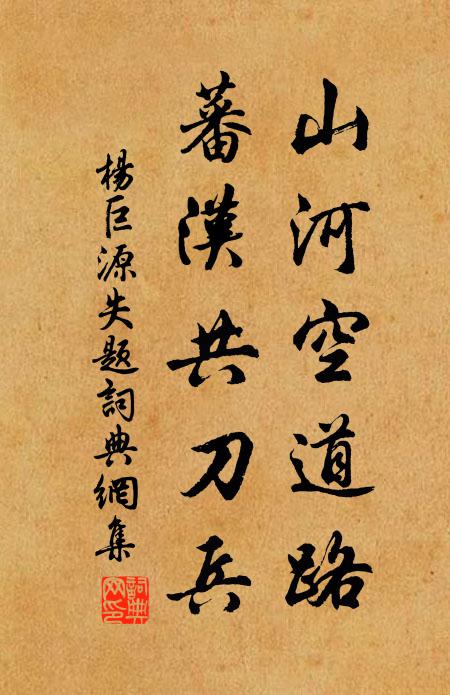 山河空道路
蕃漢共刀兵
楊巨源失題詞典網集
詞典
网印